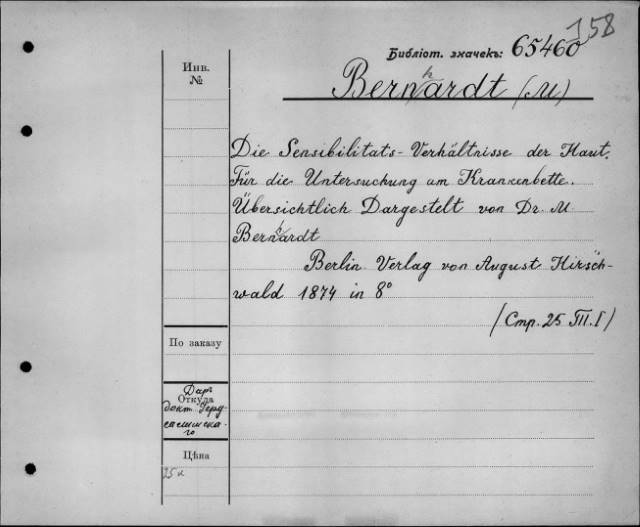 158
Библіот. значекъ: 65460
Инв.
№
Bernhardt (M)
Die Sensibilitats-Verhältnisse der Haut.
Für die Untersuchung am Krankenbette.
Übersichtlich Dargestelt von Dr. M
Bernhardt
Berlin Verlag von August Hirsch-
wald 1874 in 8°
(Стр. 25 III.I)
По заказу
Откуда
Даръ
докт.
Цѣна
25к